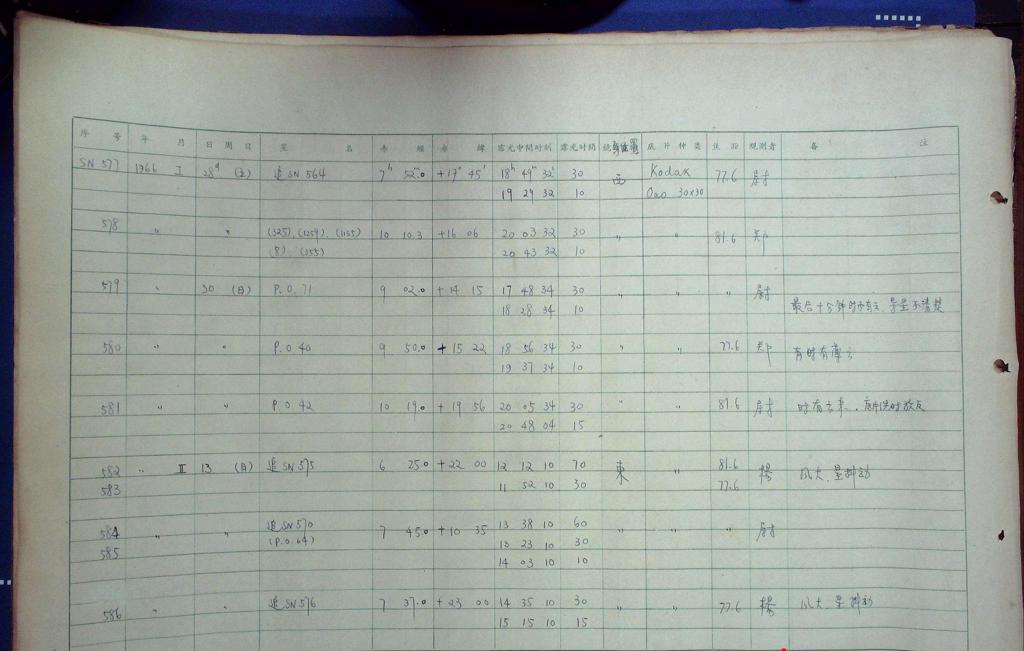 序 号 年 月 日 周 日 星 名 赤 經 赤 緯 露光中間时刻 露光时间 鏡身位置 底 片 种 类 焦 距 观測者 备 注
SN 577 1966 I 28ᵈ 追 SN 564 7ʰ 52ᵐ.0 +17° 45′ 18ʰ 49ᵐ 32ˢ 30 西 Kodak 77.6 尉
19 29 32 10 Oao 30×30
578 〃 〃 (325), (1259), (1135) 10 10.3 +16 06 20 03 32 30 〃 〃 81.6 郑
(8), (355) 20 43 32 10
579 〃 30 (日) P.O. 71 9 02.0 +14 15 17 48 34 30 〃 〃 〃 尉
18 28 34 10 最后十分钟时有云, 导星不清楚
580 〃 〃 P.O 40 9 50.0 +15 22 18 56 34 30 〃 〃 77.6 郑 有时有薄云
19 37 34 10
581 〃 〃 P.O 42 10 19.0 +19 56 20 05 34 30 〃 〃 81.6 尉 时有云来, 底片洗时放反
20 48 04 15
582 〃 II 13 (日) 追 SN 575 6 25.0 +22 00 12 12 10 70 東 〃 81.6 楊 风大, 星抖动
583 11 52 10 30 77.6
584 〃 〃 追 SN 570 7 45.0 +10 35 13 38 10 60 〃 〃 〃 尉
(P.O.64) 13 23 10 30
585 14 03 10 10
586 〃 〃 追 SN 576 7 37.0 +23 00 14 35 10 30 〃 77.6 楊 风大 星抖动
15 15 10 15